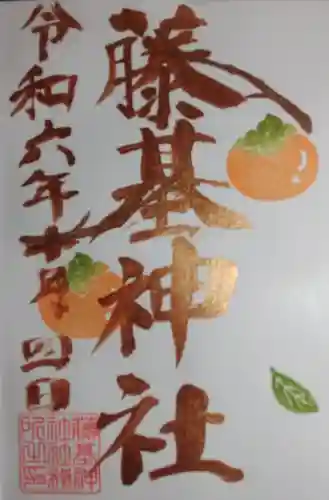 藤基神社
令和六年十月四日